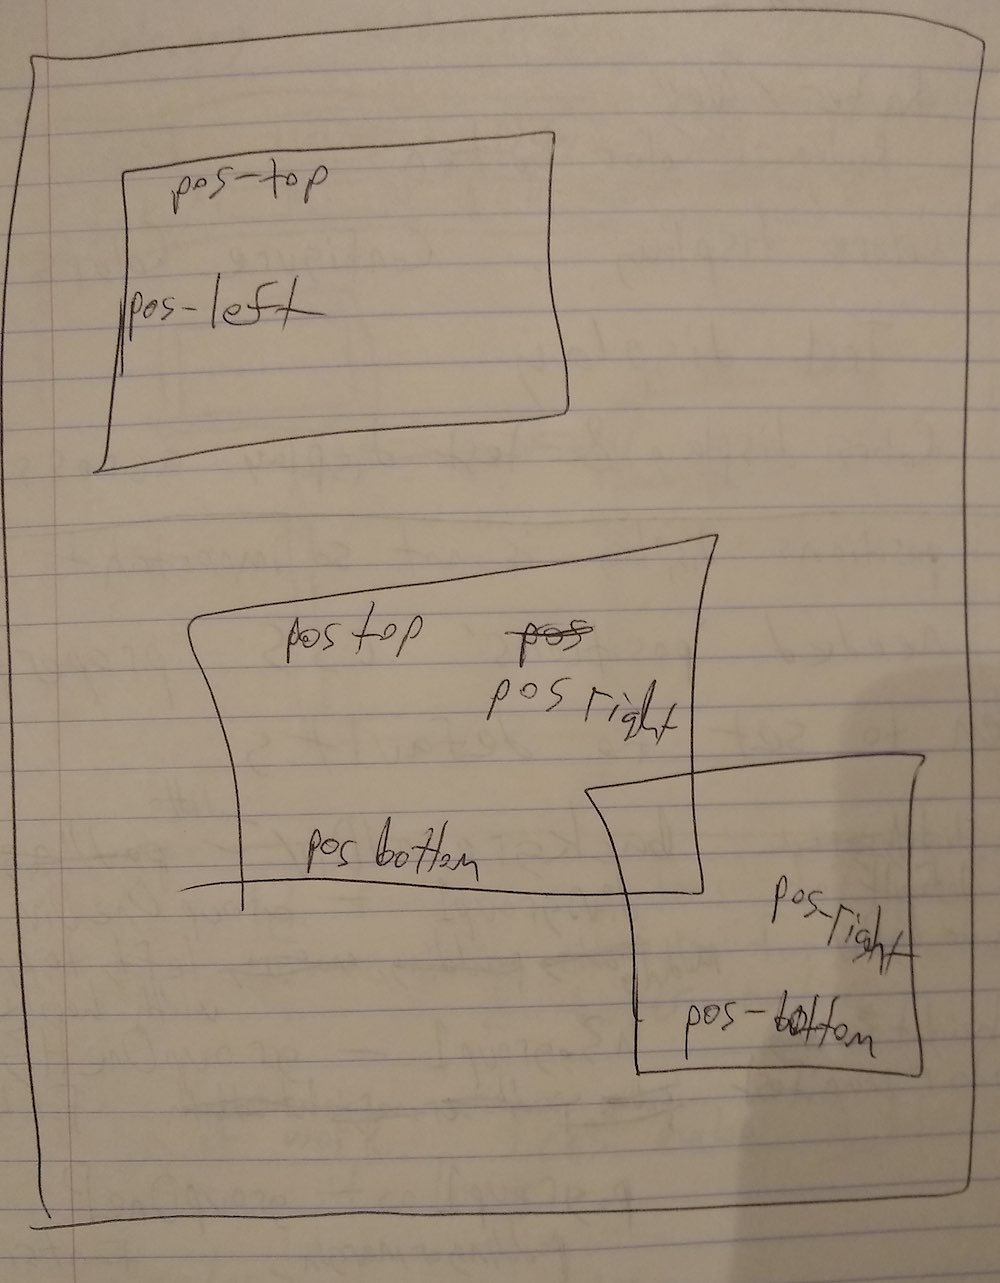 pos-top
pos-left
pos top
pos
pos right
pos bottom
pos-right
pos-bottom